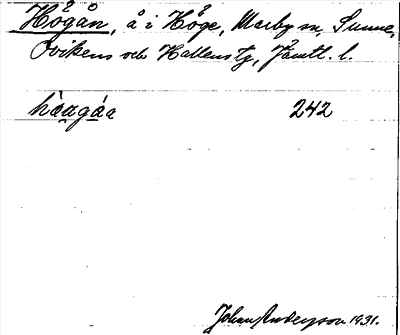 Högån, å i Höge, Marby sn, Sunne,
Ovikens och Hallens tg, Jämtl. l.
hàagáa 242
Johan Anderson 1931.